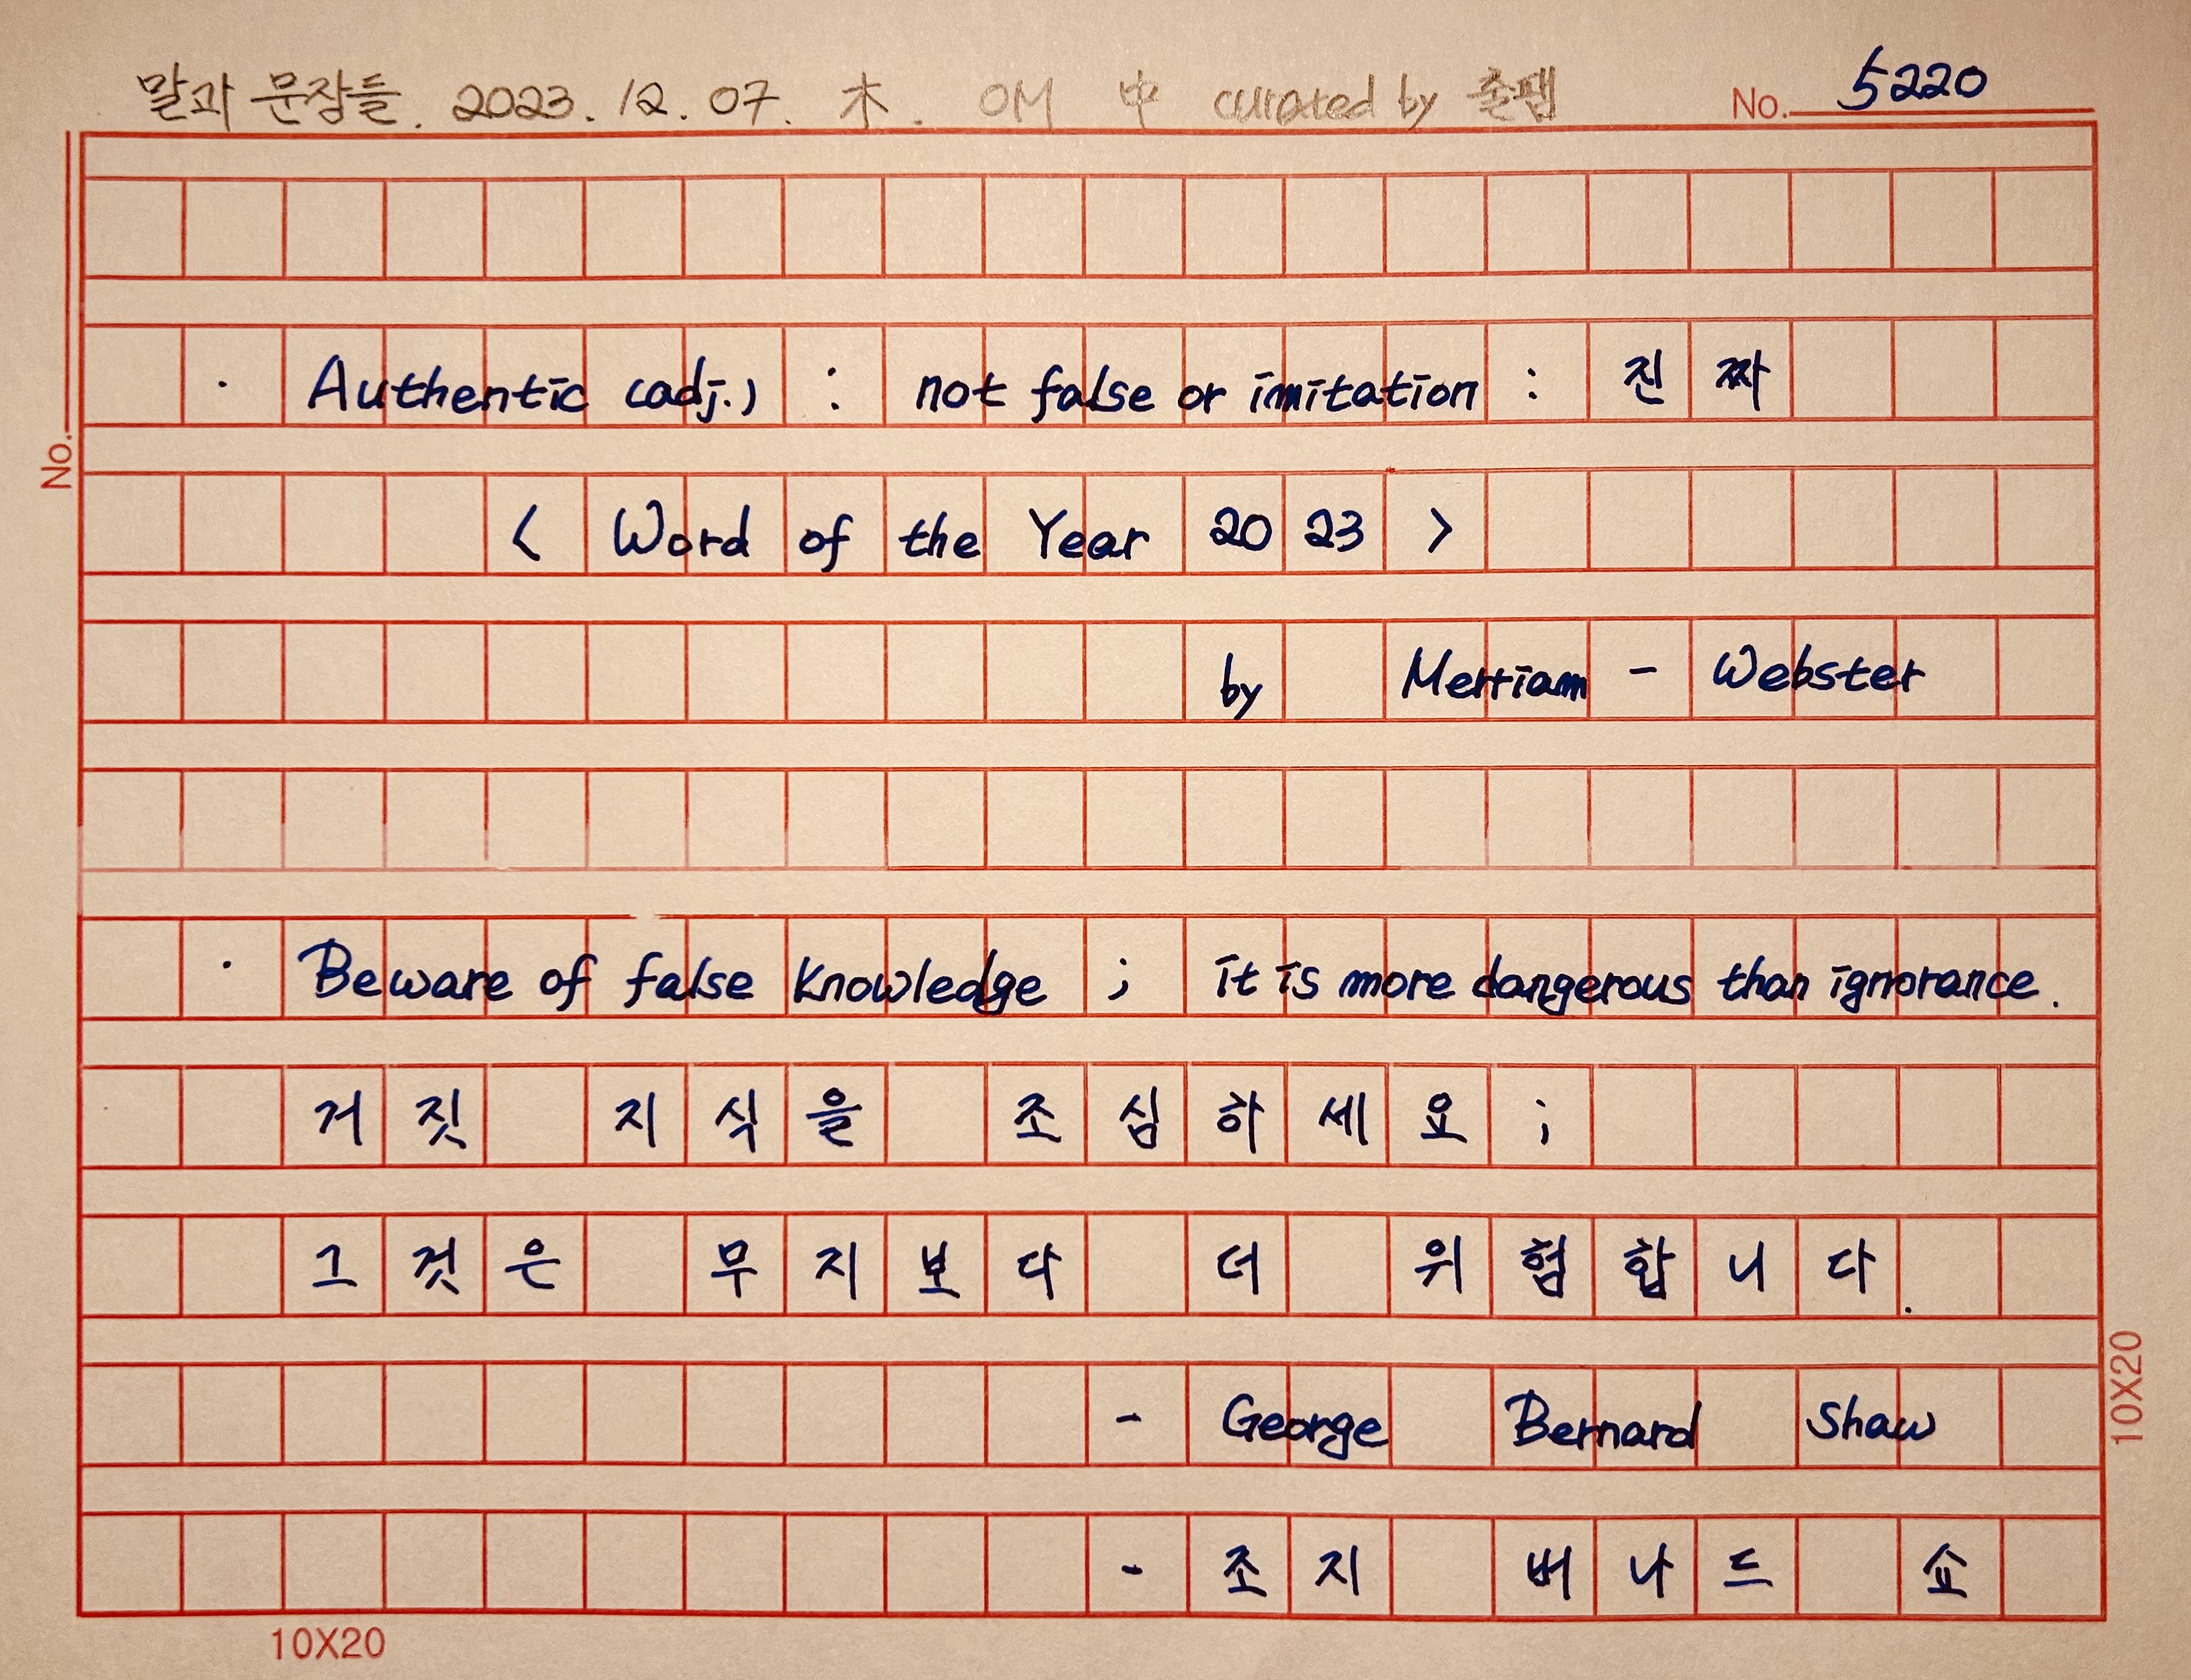 말과 문장들. 2023. 12. 07. 木. OM 中 curated by 졸팸
No. 5220
No.
· Authentic (adj.) : not false or imitation : 진짜
< Word of the Year 2023 >
by Merriam - Webster
· Beware of false knowledge ; it is more dangerous than ignorance.
거짓 지식을 조심하세요 ;
그것은 무지보다 더 위험합니다.
- George Bernard Shaw
- 조지 버나드 쇼
10X20
10X20